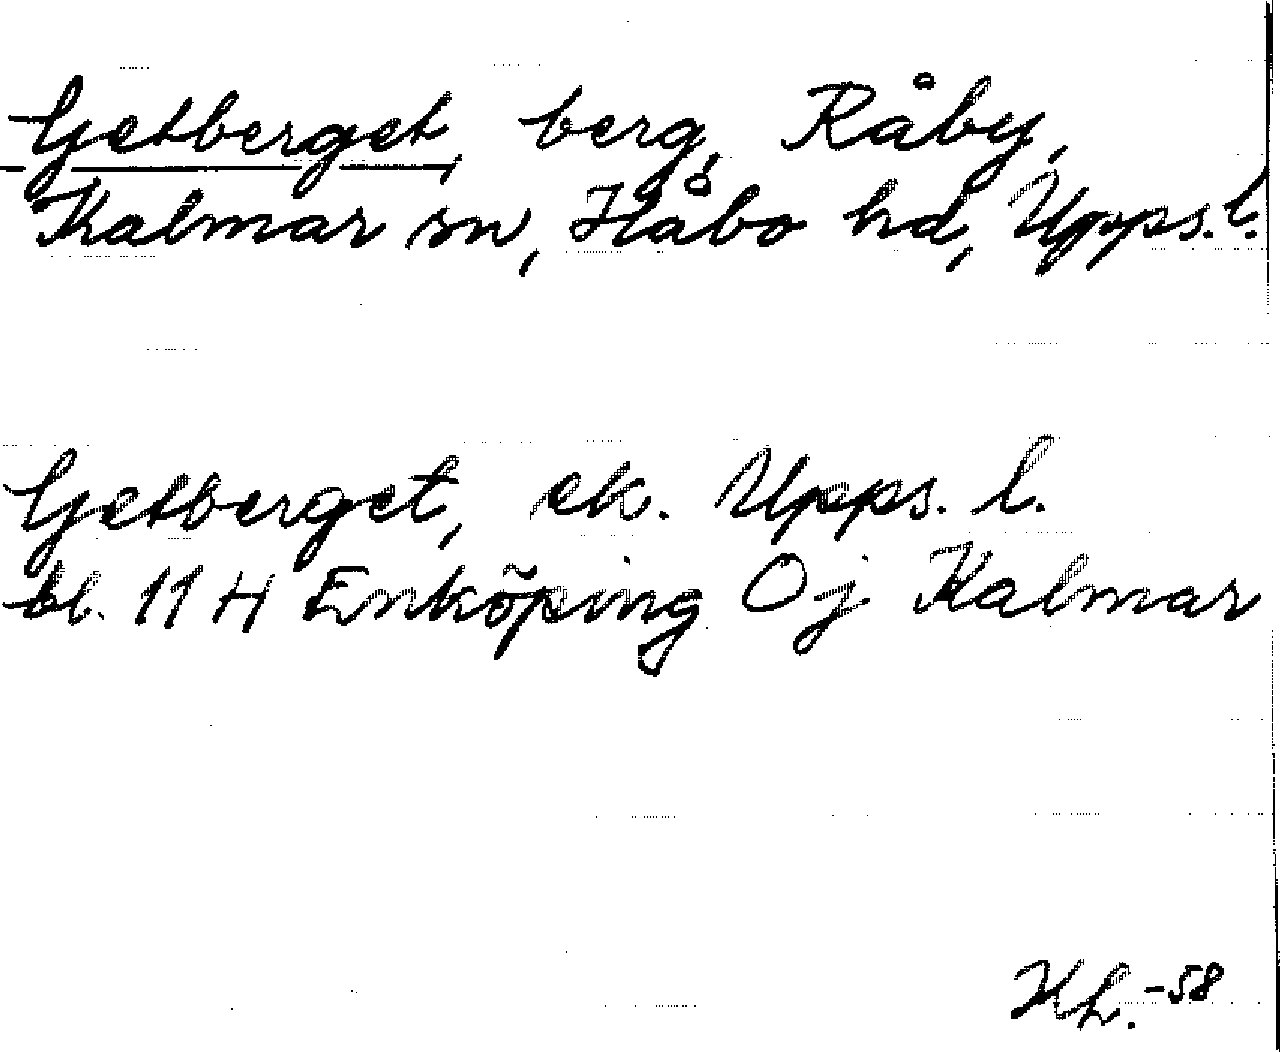 Getberget, berg, Råby,
Kalmar sn, Håbo hd, Upps. l.
Getberget, ek. Upps. l.
bl. 11 H Enköping Oj Kalmar
Hh. -58